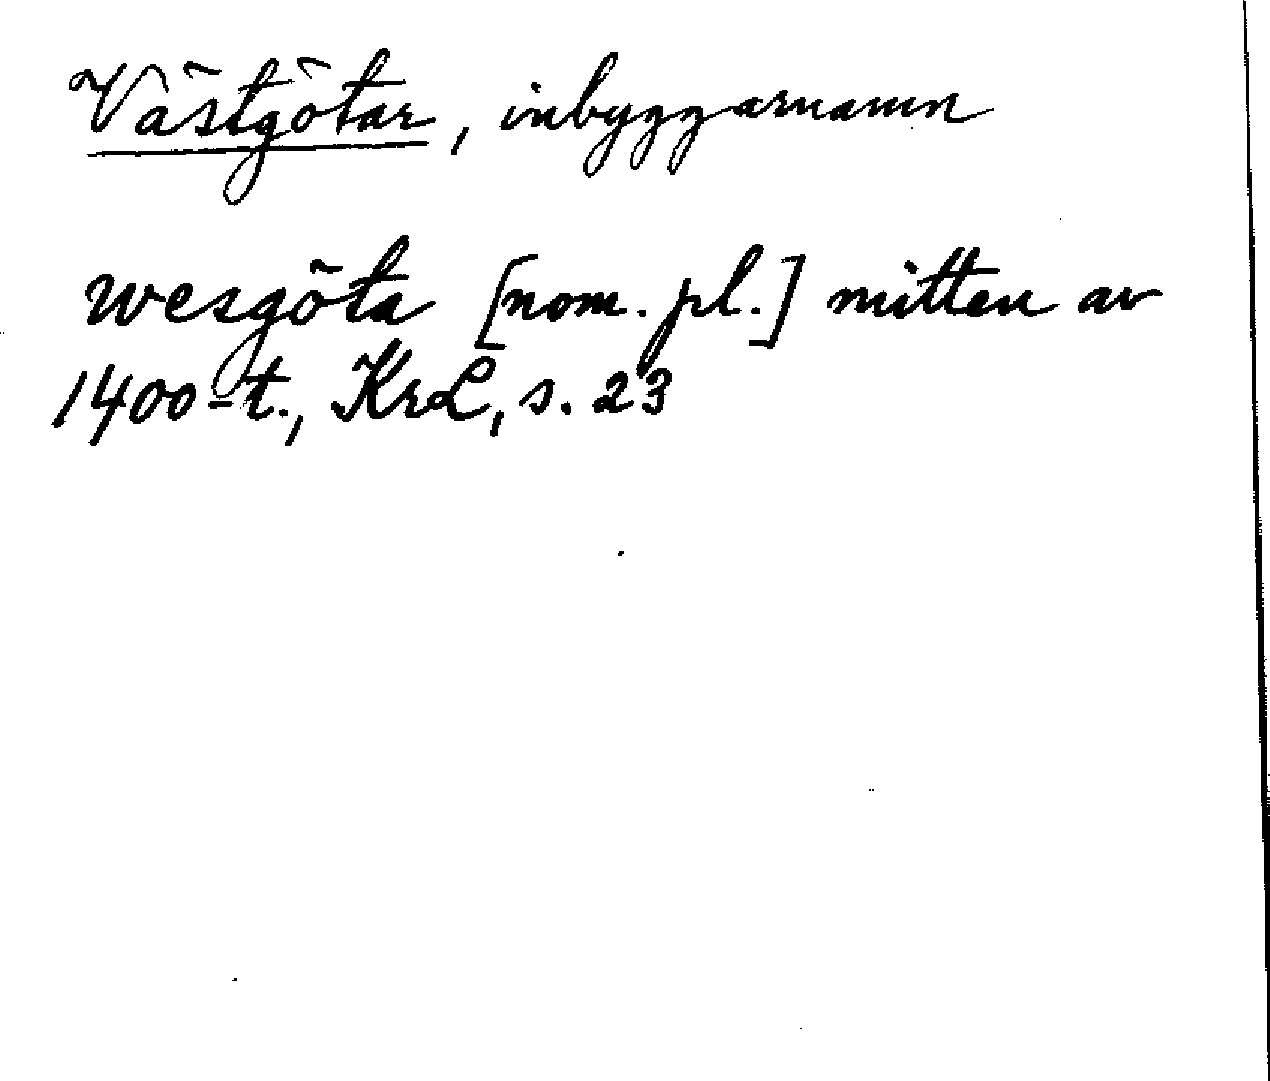 Västgötar, inbyggarnamn
wesgöta [nom. pl.] mitten av
1400-t., KrL, s. 23